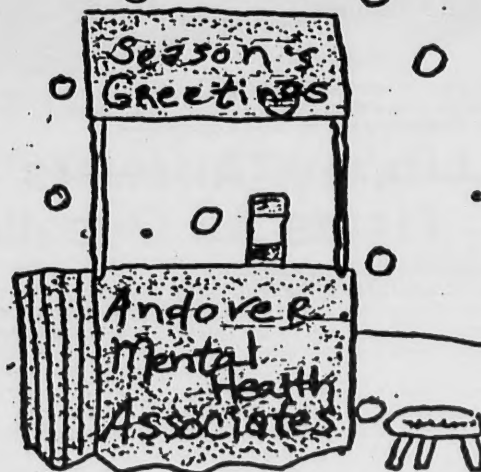 Season's
Greetings
Andover
Mental
Health
Associates